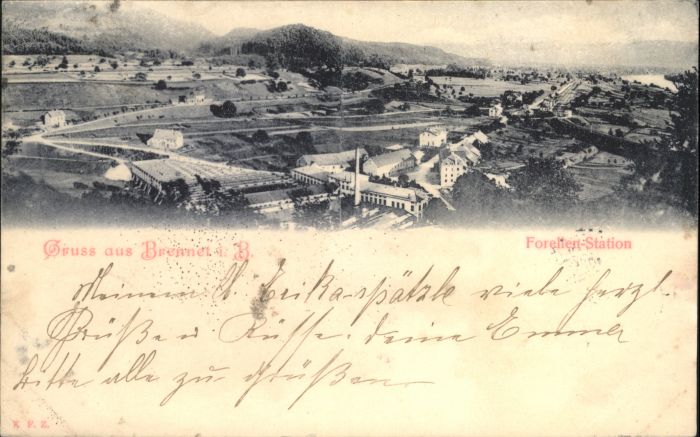 Gruss aus Brennet i. B.
Forellen-Station
Meinem l. Erika-spätzle viele herzl.
Grüße u. Küsse. deine Emmer
bitte alle zu grüßen
K. F. Z.